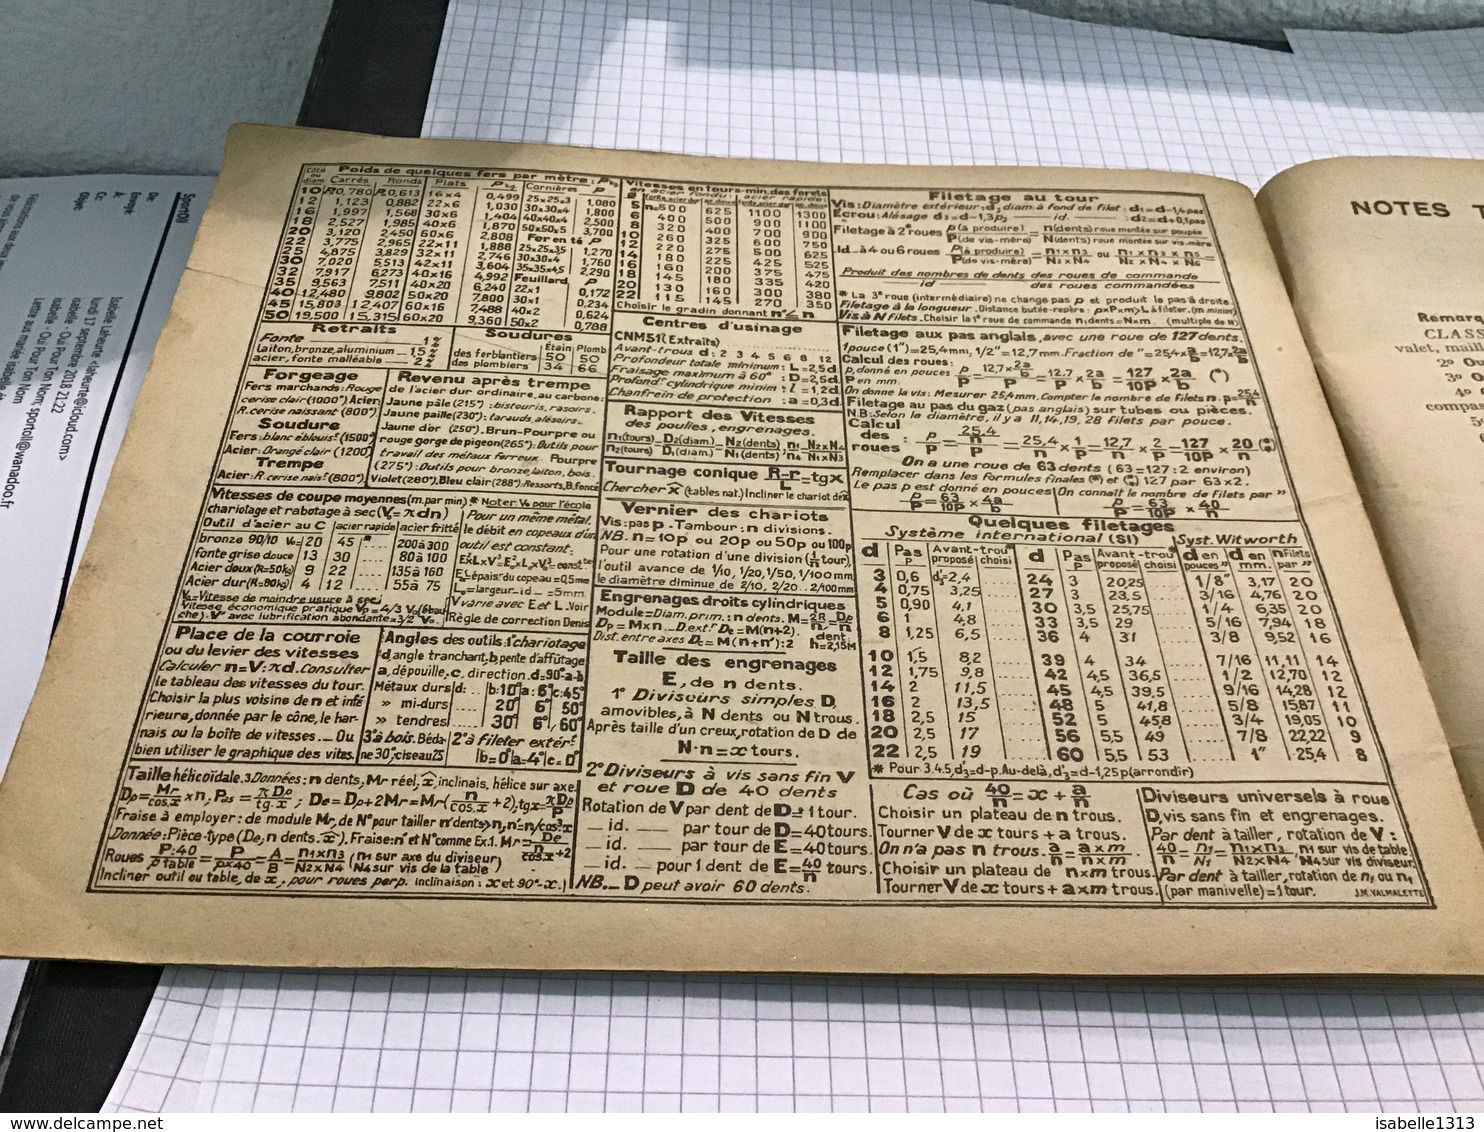 Poids de quelques fers par mètre: P kg
Côté ou diam. Carrés Ronds Plats P kg Cornières P
10 P=0,780 P=0,613 16×4 0,499 25×25×3 1,080
12 1,123 0,882 22×6 1,030 30×30×4 1,800
16 1,997 1,568 30×6 1,404 40×40×4 2,500
18 2,527 1,985 40×6 1,870 50×50×5 3,700
20 3,120 2,450 60×6 2,808 Fer en té P
22 3,775 2,965 22×11 1,888 25×25×3,5 1,270
25 4,875 3,829 32×11 2,746 30×30×4 1,760
30 7,020 5,513 42×11 3,604 35×35×4,5 2,290
32 7,917 6,273 40×16 4,992 Feuillard P
35 9,563 7,511 40×20 6,240 22×1 0,172
40 12,480 9,802 50×20 7,800 30×1 0,234
45 15,803 12,407 60×16 7,488 40×2 0,624
50 19,500 15,315 60×20 9,360 50×2 0,788
Retraits
Fonte 1%
Laiton, bronze, aluminium 1,5%
acier, fonte malléable 2%
Soudures
Étain Plomb
des ferblantiers 50 50
des plombiers 34 66
Forgeage
Fers marchands: Rouge
cerise clair (1000°) Acier:
R. cerise naissant (800°)
Soudure
Fers: blanc éblouist (1500°)
Acier: Orangé clair (1200°)
Trempe
Acier: R. cerise naist (800°)
Revenu après trempe
de l'acier dur ordinaire, au carbone:
Jaune pâle (215°): bistouris, rasoirs.
Jaune paille (230°): tarauds, alésoirs.
Jaune d'or (250°). Brun-Pourpre ou
rouge gorge de pigeon (265°): Outils pour
travail des métaux ferreux. Pourpre
(275°): Outils pour bronze, laiton, bois.
Violet (280°). Bleu clair (288°): Ressorts, B. foncé
Vitesses de coupe moyennes (m. par min) * Noter V₀ pour l'école
chariotage et rabotage à sec (V₀=πdn)
Outil d'acier au C acier rapide acier fritté
bronze 90/10 V₀= 20 45 *.... 200 à 300
fonte grise douce 13 30 .... 80 à 100
Acier doux (R=50kg) 9 22 .... 135 à 160
Acier dur (R=80kg) 4 12 .... 55 à 75
V₀=Vitesse de moindre usure à sec
Vitesse économique pratique Vp=4/3 V₀ (ébau-
che). V' avec lubrification abondante=3/2 V₀.
Pour un même métal.
le débit en copeaux d'un
outil est constant:
E₀=épaisr du copeau=0,5mm
L₀=largeur _id_ =5mm.
V varie avec E et L. Voir
Règle de correction Denis
Place de la courroie
ou du levier des vitesses
Calculer n=V:πd. Consulter
le tableau des vitesses du tour.
Choisir la plus voisine de n et infé-
rieure, donnée par le cône, le har-
nais ou la boîte de vitesses. _ Ou
bien utiliser le graphique des vites.
Angles des outils: 1° chariotage
d, angle tranchant, b pente d'affûtage
a, dépouille, c, direction. d=90°-a-b
Métaux durs d: .. b:10° a:6° c:45°
» mi-durs .... 20° 6° 50°
» tendres .... 30° 6° 60°
3° à bois. Béda-
ne 30°, ciseau 25
2° à fileter extérr
b=0° a=4° c=0°
Taille hélicoïdale. 3 Données: n dents, Mr réel, x̂ inclinais. hélice sur axe
Dp=Mr/cos.x ×n, Pas=πDp/tg.x ; De=Dp+2Mr=Mr(n/cos.x+2), tgx=πDp/P
Fraise à employer: de module Mr, de N° pour tailler n' dents>n, n'=n/cos³x
Donnée: Pièce-type (De, n dents. x̂). Fraise: n' et N° comme Ex.1. Mr=De/(n/cos.x+2)
Roues P:40/p table=P/p×40=A/B=n1×n3/N2×N4 (n1 sur axe du diviseur) (N4 sur vis de la table)
Incliner outil ou table, de x, pour roues perp. inclinaison: x et 90°-x.)
Vitesses en tours-min. des forets
en acier fondu: acier rapide:
Ø fonte acier dur ac. doux fonte acier dur ac. doux
5 n=500 625 1100 1300
6 400 500 900 1100
8 320 400 700 900
10 260 325 600 750
12 220 275 500 625
14 180 225 425 525
16 160 200 375 475
18 145 180 335 420
20 130 160 300 380
22 115 145 270 350
Choisir le gradin donnant n'≤n
Centres d'usinage
CNM51 (Extraits)
Avant-trous d: 2 3 4 5 6 8 12
Profondeur totale minimum: L=2,5d
Fraisage maximum à 60°: D=2,5d
Profondr cylindrique minim: l=1,2d
Chanfrein de protection: a=0,3d
Rapport des Vitesses
des poulies, engrenages.
n1(tours)/n2(tours)=D2(diam.)/D1(diam.)=N2(dents)/N1(dents); n1/n4=N2×N4/N1×N3
Tournage conique R-r/L=tgx
Chercher x̂ (tables nat.) Incliner le chariot de x
Vernier des chariots
Vis: pas p. Tambour: n divisions.
NB. n=10p ou 20p ou 50p ou 100p
Pour une rotation d'une division (1/n tour),
l'outil avance de 1/10, 1/20, 1/50, 1/100 mm
le diamètre diminue de 2/10, 2/20.. 2/100 mm
Engrenages droits cylindriques
Module=Diam. prim.: n dents. M=2R/n=Dp/n
Dp=M×n _ D.extr De=M(n+2).
Dist. entre axes Dc=M(n+n'):2 dent h=2,15M
Taille des engrenages
E, de n dents.
1° Diviseurs simples D,
amovibles, à N dents ou N trous.
Après taille d'un creux, rotation de D de
N:n=x tours.
2° Diviseurs à vis sans fin V
et roue D de 40 dents
Rotation de V par dent de D=1 tour.
_ id. __ par tour de D=40 tours.
_ id. __ par tour de E=40 tours.
_ id. __ pour 1 dent de E=40/n tours.
NB._ D peut avoir 60 dents.
Filetage au tour
Vis: Diamètre extérieur: d, diam. à fond de filet: d1=d-1,4 pas
Ecrou: Alésage d3=d-1,3p, __ id. __ : d2=d+0,1pas
Filetage à 2 roues p(à produire)/P(de vis-mère)=n(dents) roue montée sur poupée/N(dents) roue montée sur vis-mère
_Id._ à 4 ou 6 roues p(à produire)/P(de vis-mère)=n1×n3/N2×N4 ou n1×n3×n5/N2×N4×N6=
Produit des nombres de dents des roues de commande
__ id __ des roues commandées
* La 3e roue (intermédiaire) ne change pas p et produit le pas à droite.
Filetage à la longueur. Distance butée-repère: p×P×m>L à fileter. (m minim)
Vis à N filets. Choisir la 1e roue de commande n1 dents=N×m. (multiple de N)
Filetage aux pas anglais, avec une roue de 127 dents.
1 pouce (1")=25,4mm, 1/2"=12,7mm. Fraction de "=25,4×a/b=12,7×2a/b
Calcul des roues:
p, donné en pouces
P en mm. p/P=12,7×2a/b/P=12,7/P×2a/b=127/10P×2a/b (*)
On donne la vis: Mesurer 25,4mm. Compter le nombre de filets n. p=25,4/n
Filetage au pas du gaz (pas anglais) sur tubes ou pièces.
N.B: Selon le diamètre, il y a 11, 14, 19, 28 filets par pouce.
Calcul des roues: p/P=25,4/n/P=25,4/n×1/P=12,7/P×2/n=127/10P×20/n (*)
On a une roue de 63 dents (63=127:2 environ)
Remplacer dans les formules finales (*) et (*) 127 par 63×2.
Le pas p est donné en pouces On connaît le nombre de filets par "
p/P=63/10P×4a/b p/P=63/10P×40/n
Quelques filetages
Système international (SI) Syst. Witworth
d Pas P Avant-trou proposé choisi d Pas P Avant-trou proposé choisi d en pouces" d en mm. n Filets par "
3 0,6 d'3=2,4 24 3 20,25 1/8" 3,17 20
4 0,75 3,25 27 3 23,5 3/16 4,76 20
5 0,90 4,1 30 3,5 25,75 1/4 6,35 20
6 1 4,8 33 3,5 29 5/16 7,94 18
8 1,25 6,5 36 4 31 3/8 9,52 16
10 1,5 8,2 39 4 34 7/16 11,11 14
12 1,75 9,8 42 4,5 36,5 1/2 12,70 12
14 2 11,5 45 4,5 39,5 9/16 14,28 12
16 2 13,5 48 5 41,8 5/8 15,87 11
18 2,5 15 52 5 45,8 3/4 19,05 10
20 2,5 17 56 5,5 49 7/8 22,22 9
22 2,5 19 60 5,5 53 1" 25,4 8
* Pour 3.4.5, d'3=d-p. Au-delà, d'3=d-1,25p (arrondir)
Cas où 40/n=x+a/n
Choisir un plateau de n trous.
Tourner V de x tours + a trous.
On n'a pas n trous. a/n=a×m/n×m
Choisir un plateau de n×m trous.
Tourner V de x tours + a×m trous.
Diviseurs universels à roue
D, vis sans fin et engrenages.
Par dent à tailler, rotation de V:
40/n=n1/N1=n1×n3/N2×N4, n1 sur vis de table N4 sur vis diviseur.
Par dent à tailler, rotation de n1 ou n4
(par manivelle)=1 tour. J.M. VALMALETTE
NOTES T
Remarq
CLASS
valet, maill
2° Ou
3° O
4° O
compas
5°
Sportoll
De:
Envoyé:
À:
Cc:
Objet:
Isabelle Laheurte <laheurte@icloud.com>
lundi 17 septembre 2018 21:22
Oui Pour Ton Nom; sportoll@wanadoo.fr
delcampe.net
isabelle1313